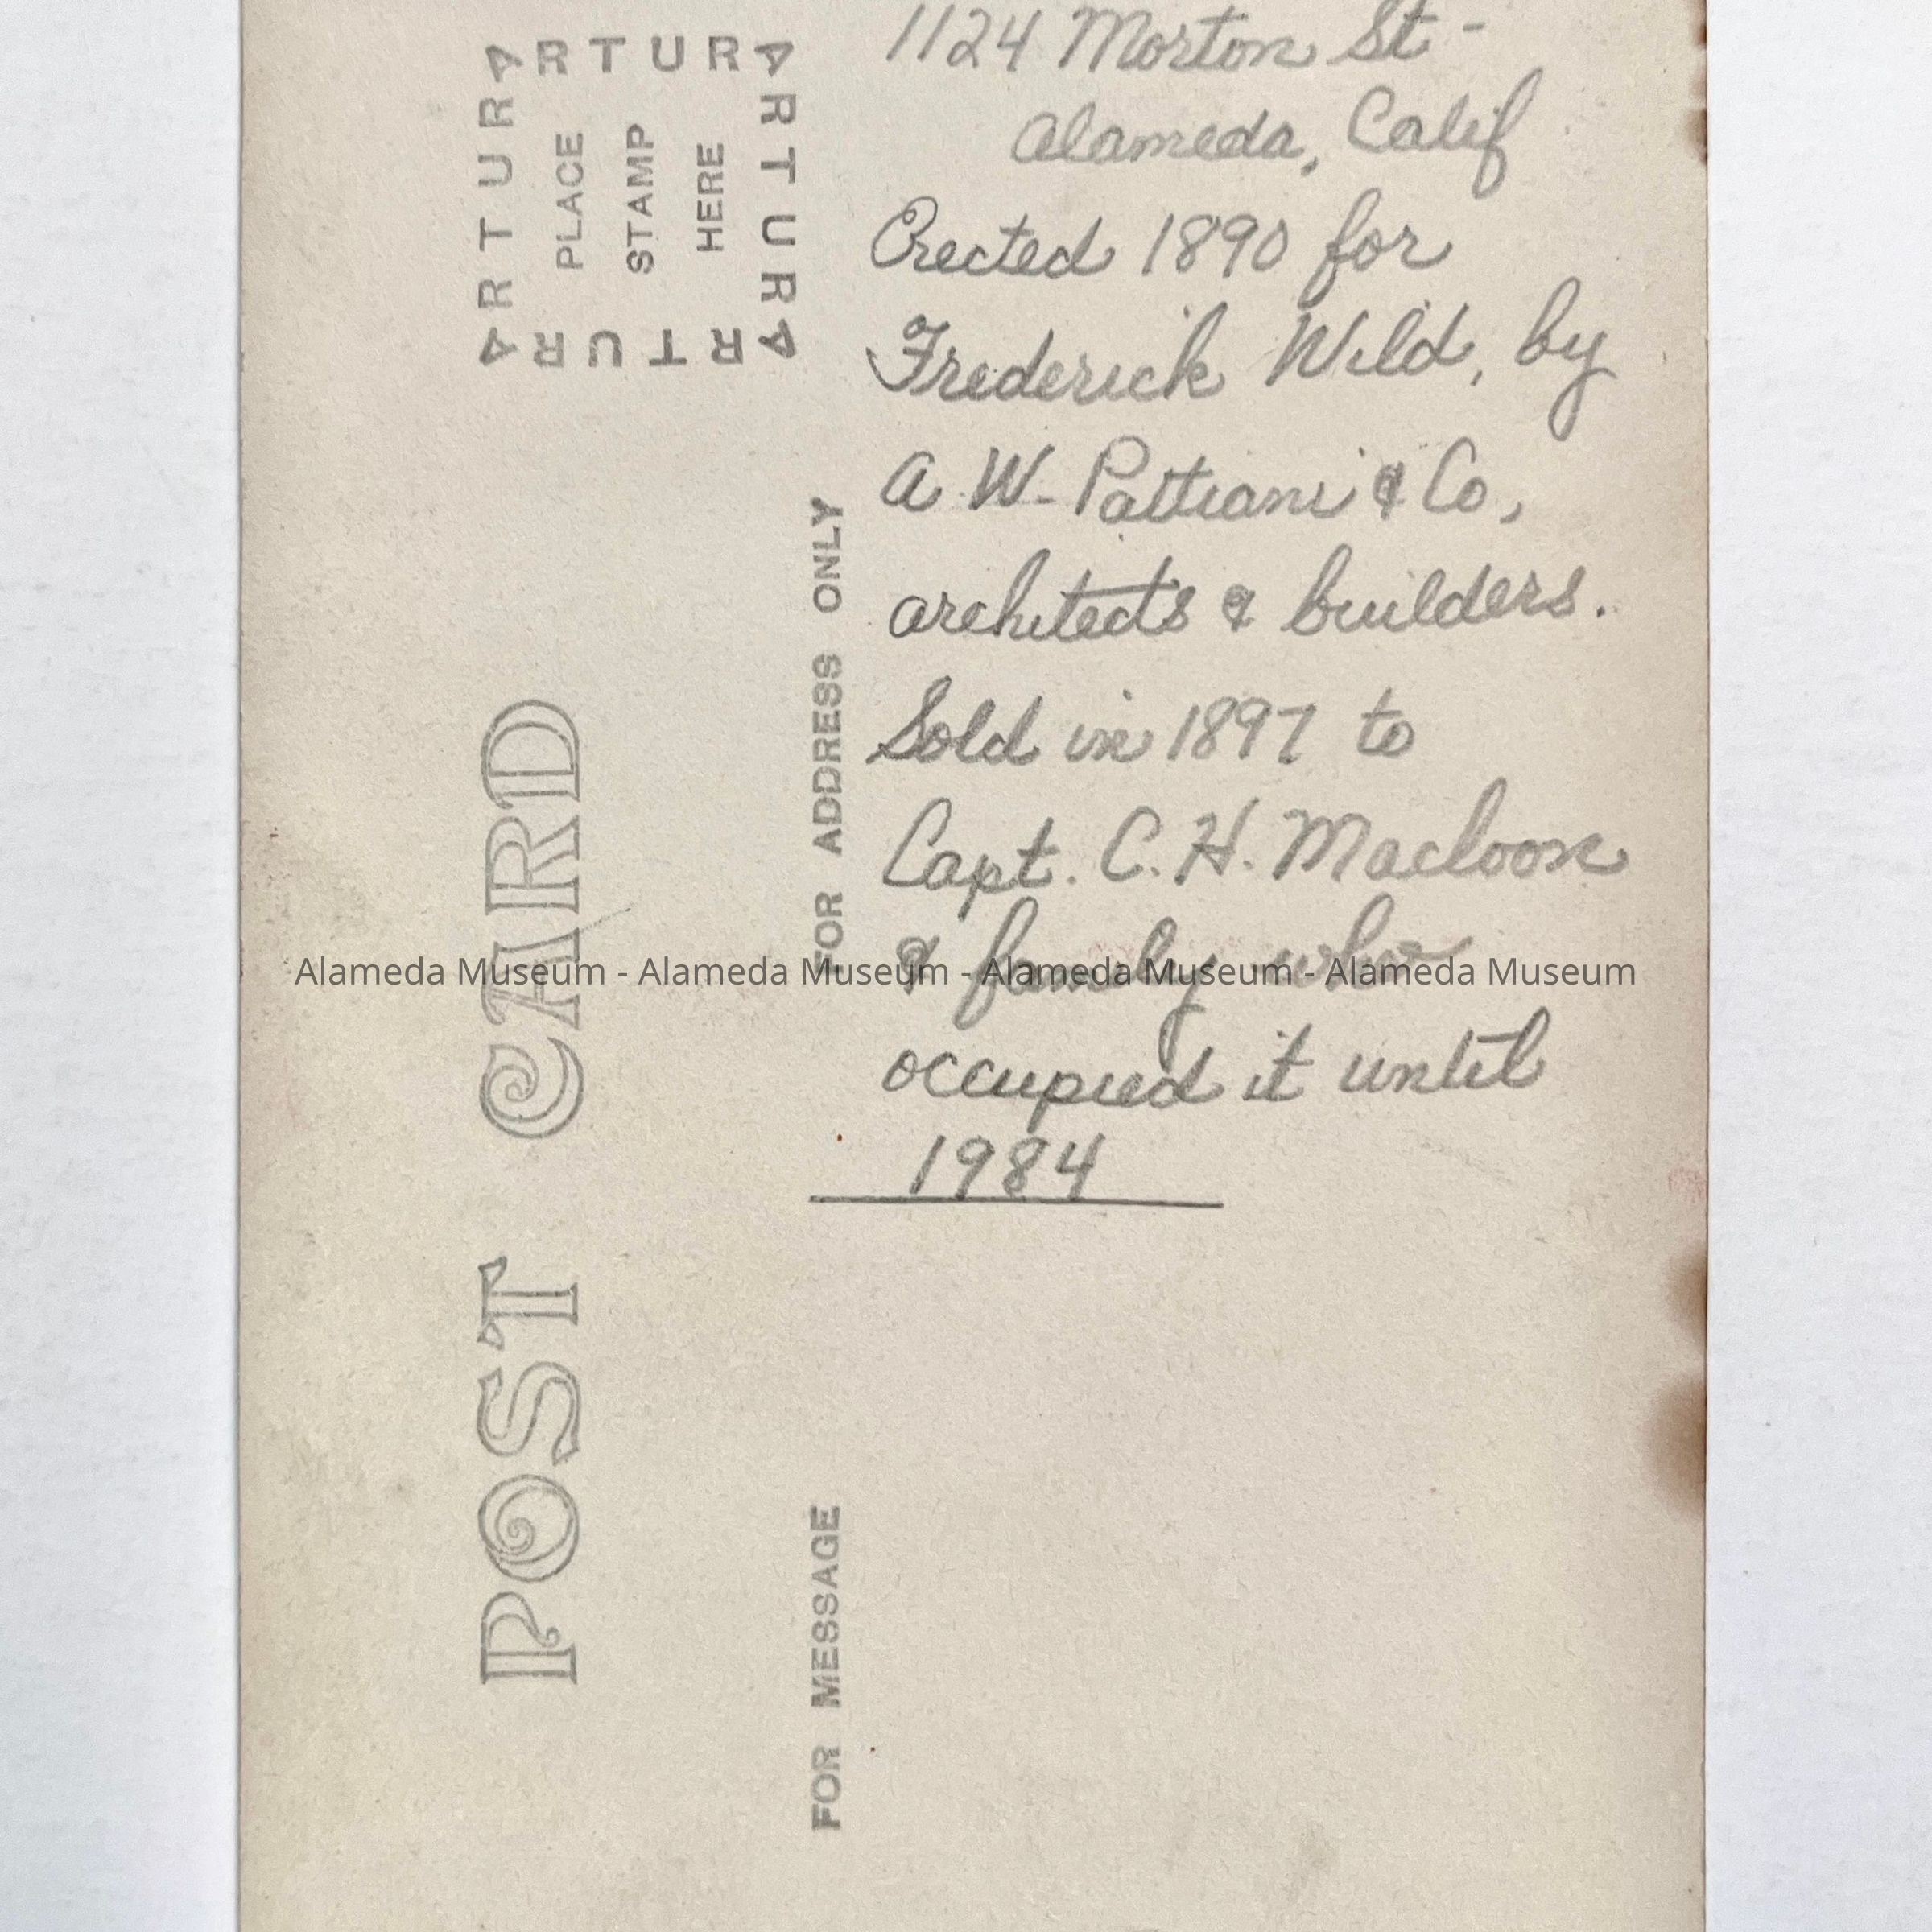 1124 Morton St -
Alameda, Calif
Erected 1890 for
Frederick Wild, by
A W- Pattiani & Co,
architects & builders.
Sold in 1897 to
Capt. C. H. Macloon
& family who
occupied it until
1984
ARTURA
ARTURA
ARTURA
ARTURA
PLACE
STAMP
HERE
POST CARD
FOR ADDRESS ONLY
FOR MESSAGE
Alameda Museum - Alameda Museum - Alameda Museum - Alameda Museum